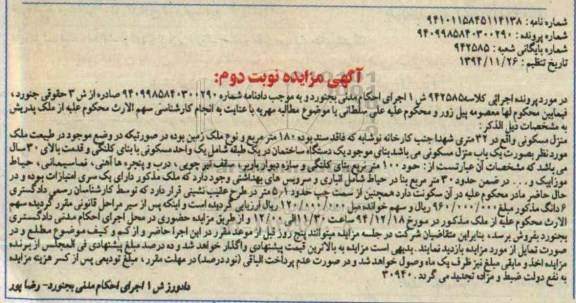 شماره نامه : ۹۴۱۰۱۱۵۸۴۵۱۱۴۱۳۸
شماره پرونده : ۹۴۰۹۹۸۵۸۴۰۳۰۰۲۹۰
شماره بایگانی شعبه : ۹۴۲۵۸۵
تاریخ تنظیم : ۱۳۹۴/۱۱/۲۶
آگهی مزایده نوبت دوم:
در مورد پرونده اجرائی کلاسه ۹۴۲۵۸۵ ش ۱ اجرای احکام مدنی بجنورد و به موجب دادنامه شماره ۹۴۰۹۹۸۵۸۴۰۳۰۰۲۹۰ صادره از ش ۳ حقوقی جنورد ،
فیمابین محکوم لها معصومه پیل زور و محکوم علیه علی سلطانی با موضوع مطالبه مهریه با عنایت به انجام کارشناسی سهم الارث محکوم علیه از ملک پدریش
به مشخصات ذیل الذکر :
منزل مسکونی واقع در ۳۲ متری شهدا جنب کارخانه نوشابه که فاقد سند بوده ۱۸۰ متر مربع و نوع ملک زمین بوده در صورتیکه در وضع موجود در طبیعت ملک
مورد نظر بصورت یک باب منزل مسکونی می باشد بنای موجود یک دستگاه ساختمان در یک طبقه شامل یک واحد مسکونی با بنای کلنگی و قدمت بالای ۳۰ سال
می باشد که مشخصات آن عبارتست از : حدود ۱۰۰ متر مربع بنای کلنگی و سازه دیوار باربر ، سقف تیر چوبی ، درب و پنجره ها آهنی ، تاسیساتی ، حیاط
موزاییک و ... در ضمن حدود ۳۰ متر مربع بنا در حیاط شامل انباری و سرویس های بهداشتی وجود دارد که ملک مذکور دارای یک سری امتیازات بوده و در
حال حاضر مادر محکوم علیه در آن سکونت دارد همچنین از سمت جنب حدود ۱.۵ متر در طرح عقب نشینی قرار دارد که توسط کارشناسان رسمی دادگستری
۶ دانگ مذکور مبلغ ۹۶۰/۰۰۰/۰۰۰ ریال و سهم خوانده مبلغ ۱۲۰/۰۰۰/۰۰۰ ریال ارزیابی گردیده است و اینکه پس از سیر مراحل قانونی مقرر گردیده سهم
الارث محکوم علیه از ملک مذکور در مورخ ۹۴/۱۲/۱۸ ساعت ۱۱/۳۰ الی ۱۲/۰۰ و از طریق مزایده حضوری در محل اجرای احکام مدنی دادگستری
بجنورد بفروش برسد ، بنابراین متقاضیان شرکت در جلسه مزایده میتوانند پنج روز قبل از موعد مقرر در این اجرا حاضر و از کم و کیف موضوع مطلع و در
صورت تمایل از مورد مزایده بازدید نمایند . بدیهی است مزایده به بالاترین قیمت پیشنهادی واگذار خواهد شد و ده درصد مبلغ پیشنهادی فی المجلس از برنده
مزایده اخذ و مابقی مبلغ نیز ظرف یک ماه وصول خواهد شد و در صورت عدم پرداخت الباقی (نود درصد) در مهلت مقرر ، مبلغ تودیعی پس از کسر هزینه مزایده
به نفع دولت ضبط و مزاده تجدید می گردد . ۳۰۹۴۰
دادورز ش ۱ اجرای احکام مدنی بجنورد - رضا پور